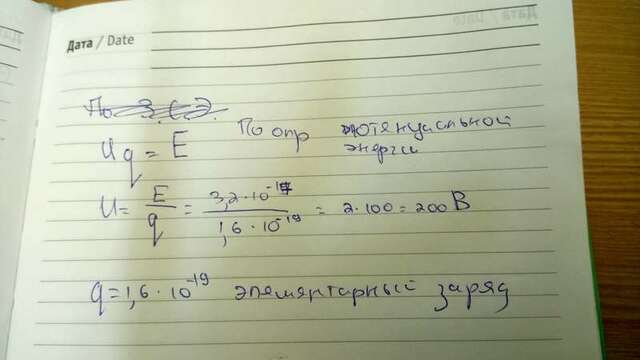 Дата / Date
По З.С.Э.
Uq = E По опр потенциальной
энергии
U = E/q = 3,2·10⁻¹⁷/1,6·10⁻¹⁹ = 2·100 = 200 В
q = 1,6·10⁻¹⁹ элементарный заряд